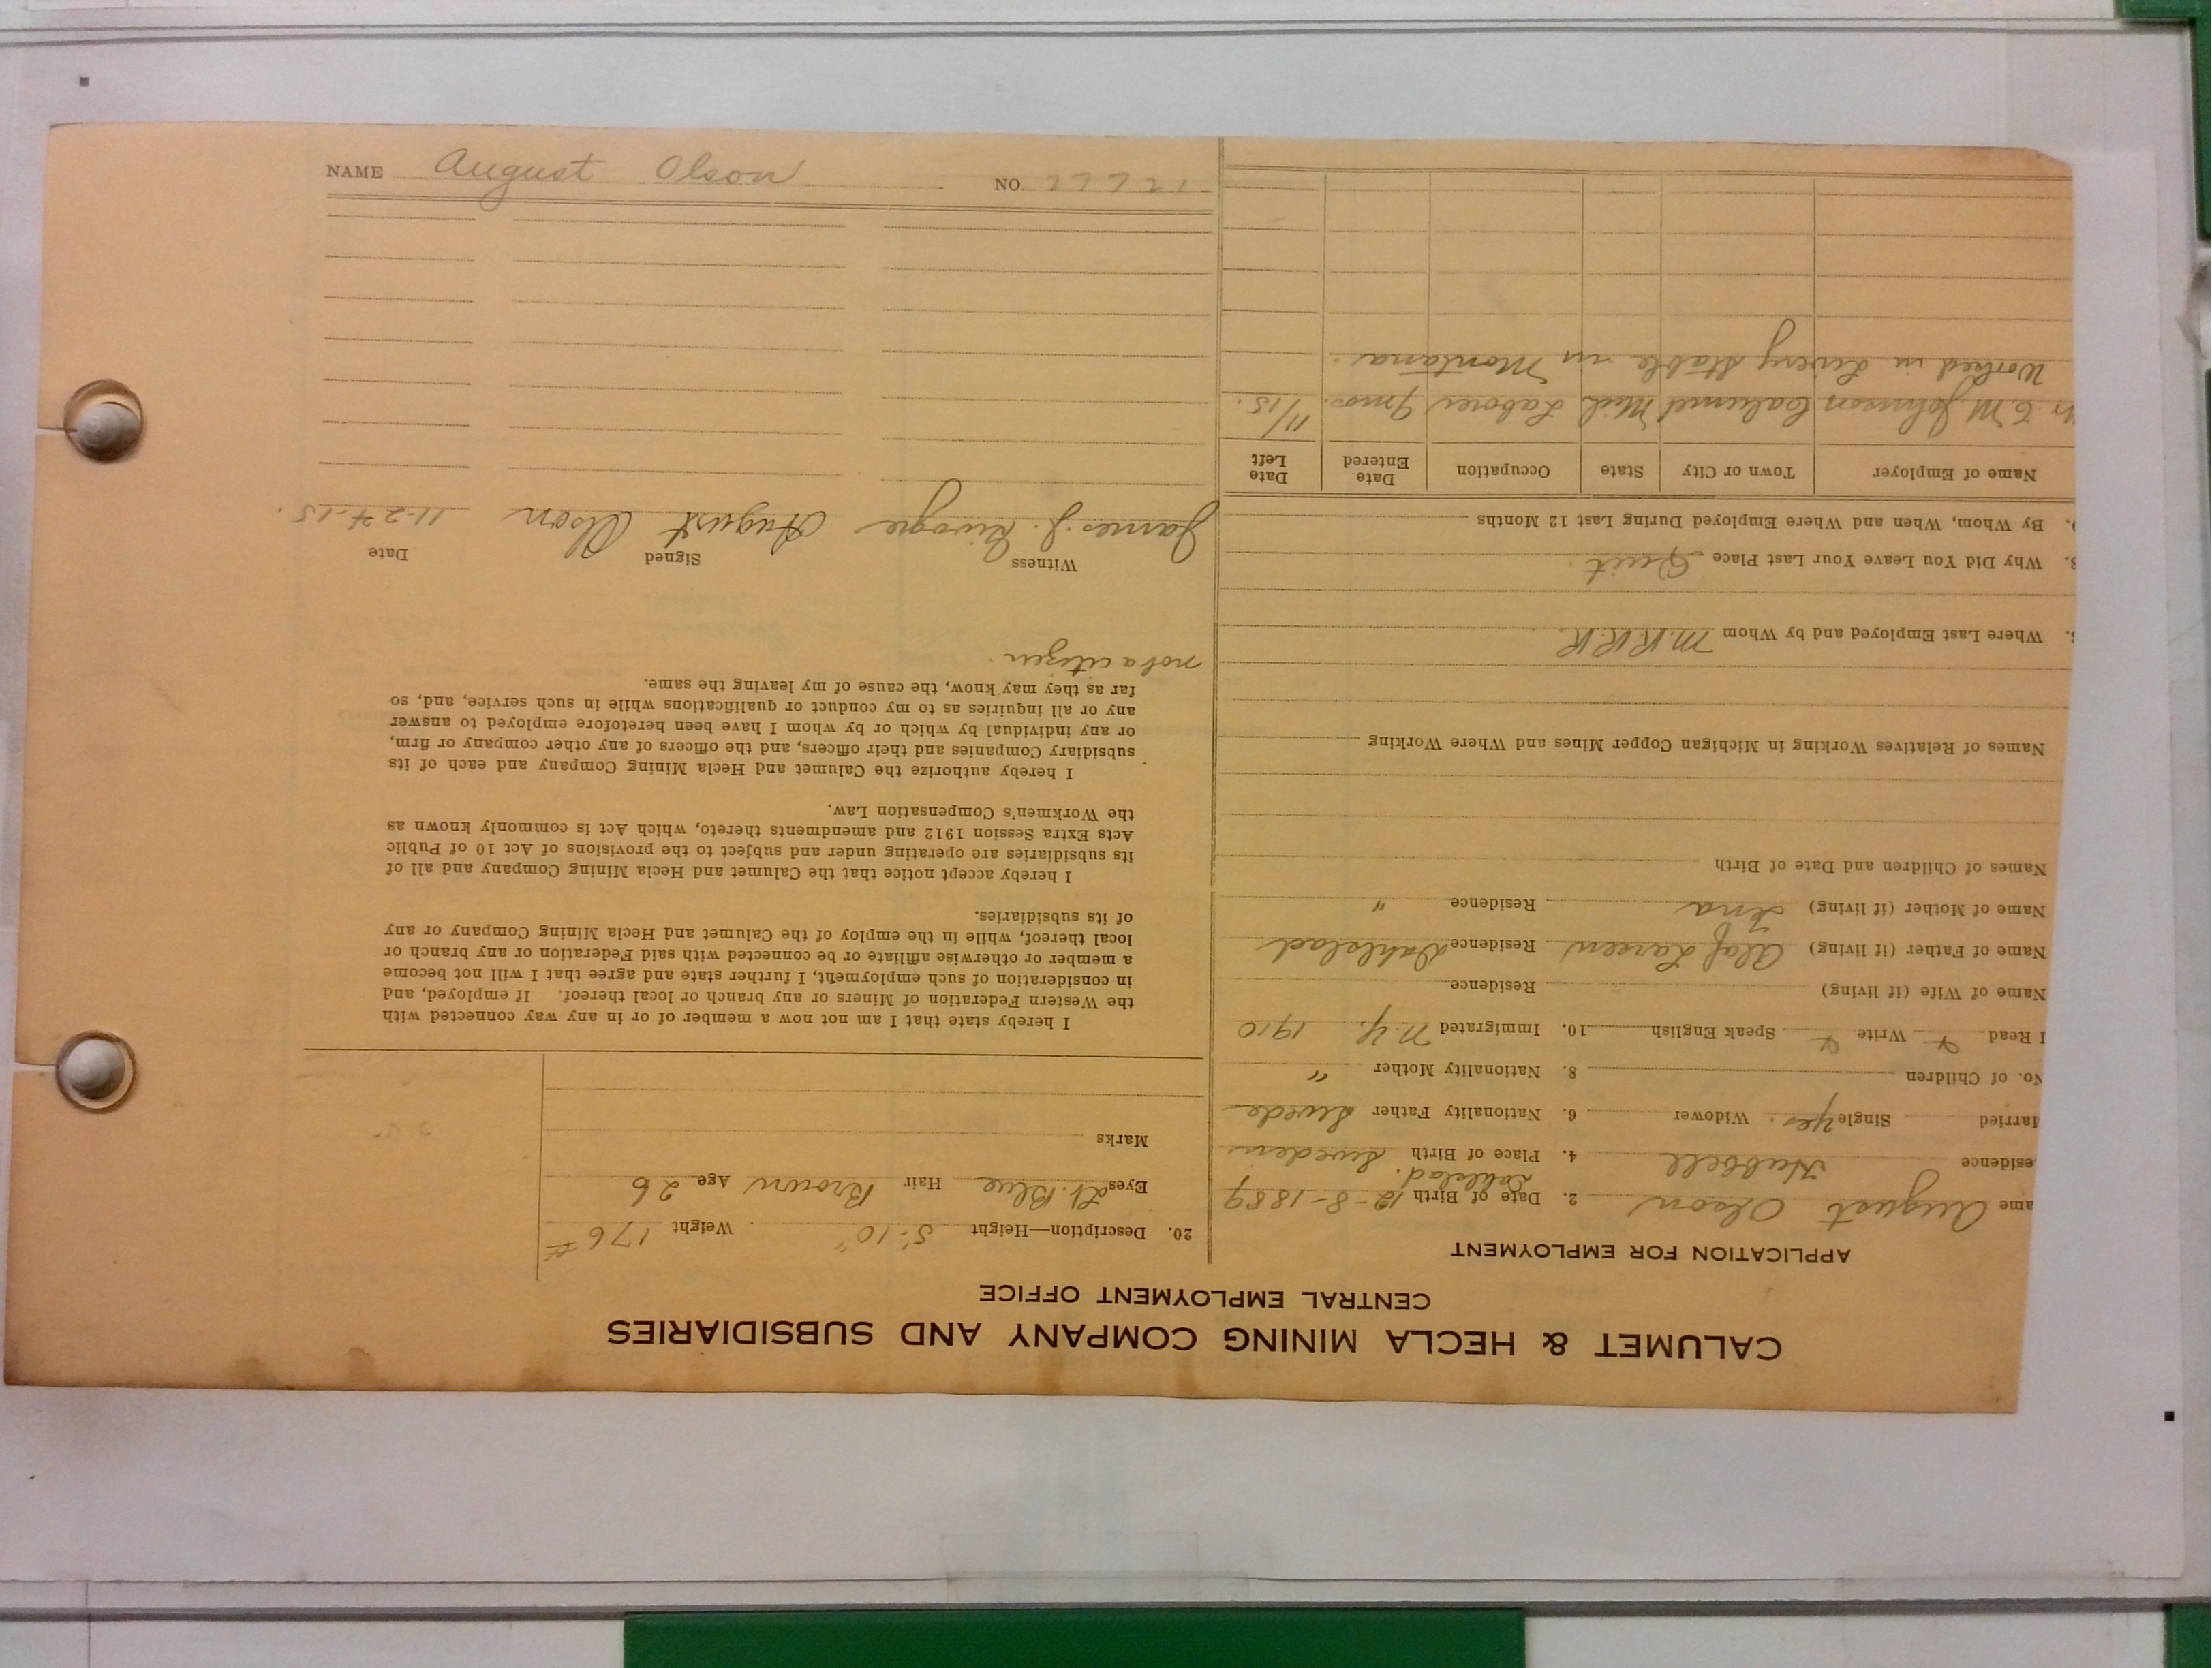 CALUMET & HECLA MINING COMPANY AND SUBSIDIARIES
CENTRAL EMPLOYMENT OFFICE
APPLICATION FOR EMPLOYMENT
ame August Olson 2. Date of Birth 12-8-1889
esidence Hubbell 4. Place of Birth Sweden
arried Single yes. Widower 6. Nationality Father Swede
No. of Children 8. Nationality Mother "
I Read Write Speak English 10. Immigrated N.Y. 1910
Name of Wife (if living) Residence
Name of Father (if living) Olaf Larsen Residence
Name of Mother (if living) Residence "
Names of Children and Date of Birth
Names of Relatives Working in Michigan Copper Mines and Where Working
Where Last Employed and by Whom
Why Did You Leave Your Last Place Quit.
By Whom, When and Where Employed During Last 12 Months
Name of Employer Town or City State Occupation Date Entered Date Left
Johnson Calumet Mich Laborer 11/15.
Worked in Livery Stable in Montana.
20. Description—Height 5'-10" Weight 176 #
Eyes Lt. Blue Hair Brown Age 26
Marks
I hereby state that I am not now a member of or in any way connected with
the Western Federation of Miners or any branch or local thereof. If employed, and
in consideration of such employment, I further state and agree that I will not become
a member or otherwise affiliate or be connected with said Federation or any branch or
local thereof, while in the employ of the Calumet and Hecla Mining Company or any
of its subsidiaries.
I hereby accept notice that the Calumet and Hecla Mining Company and all of
its subsidiaries are operating under and subject to the provisions of Act 10 of Public
Acts Extra Session 1912 and amendments thereto, which Act is commonly known as
the Workmen's Compensation Law.
I hereby authorize the Calumet and Hecla Mining Company and each of its
subsidiary Companies and their officers, and the officers of any other company or firm,
or any individual by which or by whom I have been heretofore employed to answer
any or all inquiries as to my conduct or qualifications while in such service, and, so
far as they may know, the cause of my leaving the same.
not a citizen.
Witness Signed Date
James J. August Olson 11-24-15.
NAME August Olson NO.